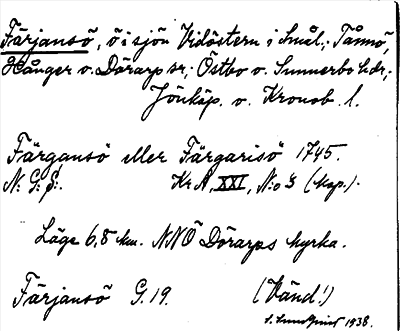 Färjansö, ö i sjön Vidöstern i Smål.; Tånnö,
Hånger o. Dörarp sr.; Östbo o. Sunnerbo hdr;
Jönköp. o. Kronob. l.
Färgansö eller Färgarisö 1745.
N: G: S:. KrA, XXI, N:o 3 (kop.).
Läge 6,8 km. NNÖ Dörarps kyrka.
Färjansö G. 19. (Vänd!)
S. Lundqvist 1938.